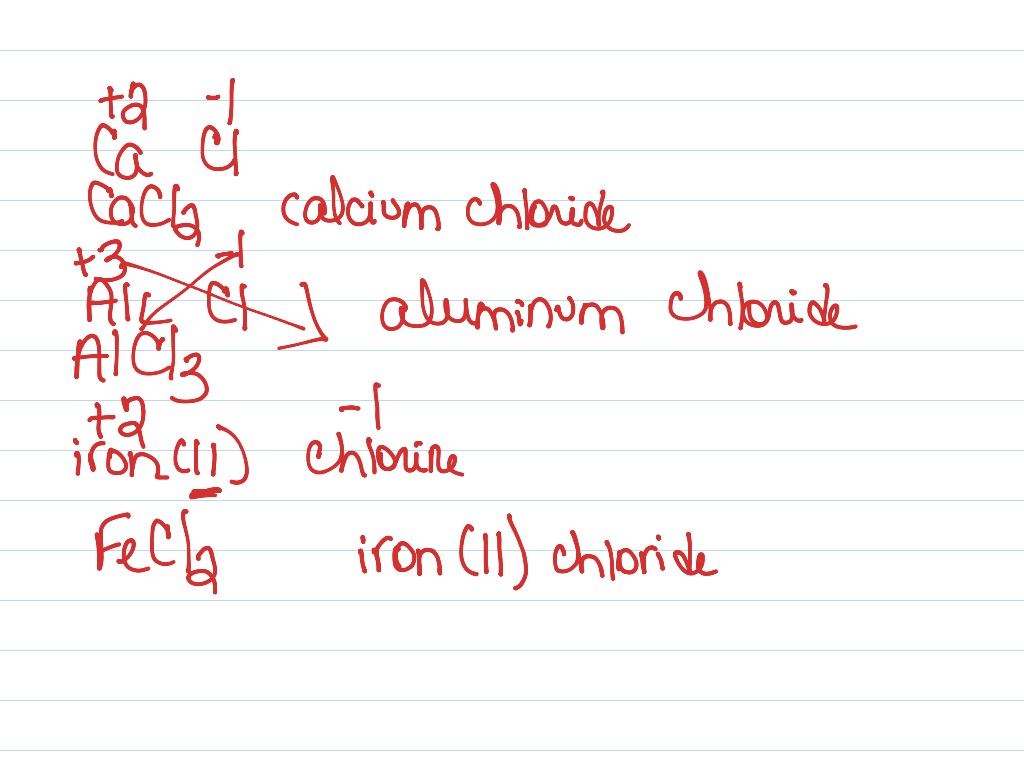 +2 -1
Ca Cl
CaCl2 calcium chloride
+3 -1
Al Cl aluminum chloride
AlCl3
+2 -1
iron (II) chlorine
FeCl2 iron (II) chloride